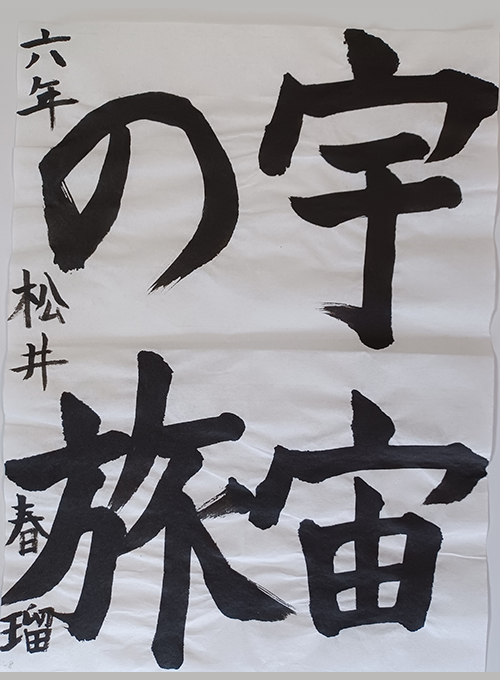 宇宙
の旅
六年 松井 春瑠